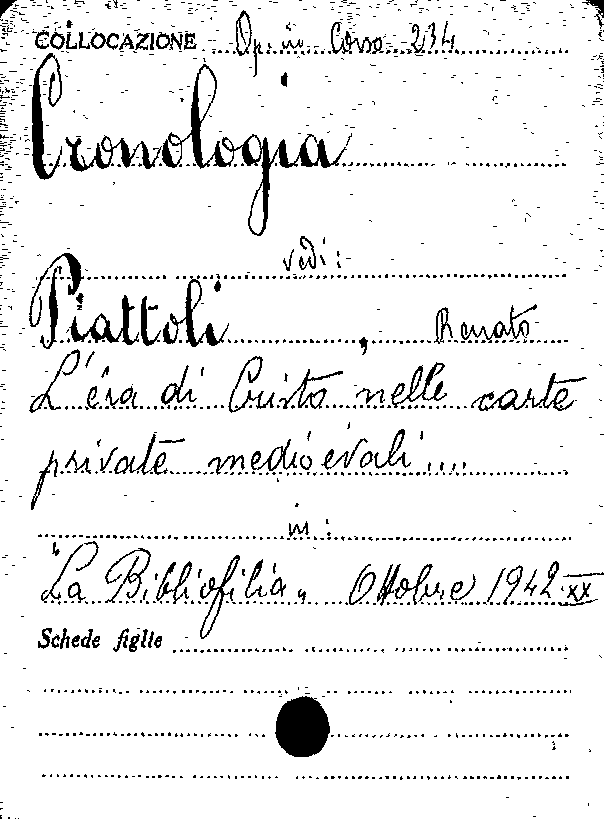 COLLOCAZIONE Op. in Corso 234
Cronologia
vedi:
Piattoli, Renato
L'éra di Cristo nelle carte
private medioevali....
in:
"La Bibliofilia„ Ottobre 1942-XX
Schede figlie